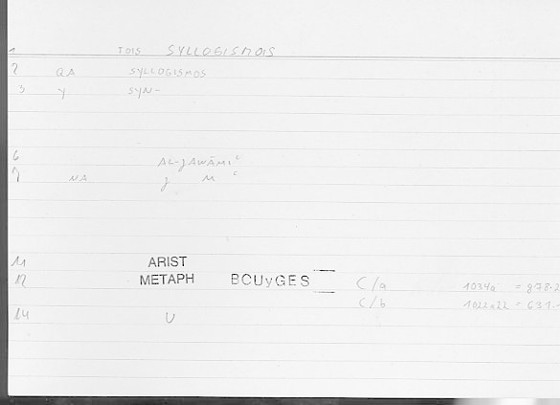 1 TOIS SYLLOGISMOIS
2 QA SYLLOGISMOS
3 Y SYN-
6 AL-ǦAWĀMIʿ
7 NA ǧ M ʿ
11 ARIST
12 METAPH BCUyGES C/a 1034a = 878.2
C/b 1022a22 = 631.
14 U